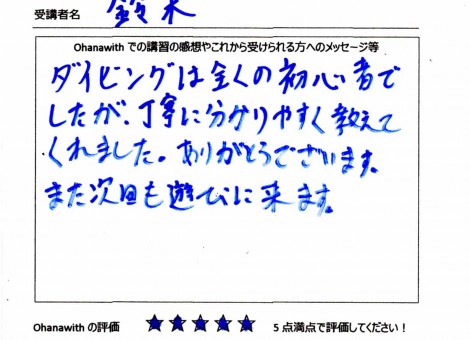 受講者名 鈴木
Ohanawith での講習の感想やこれから受けられる方へのメッセージ等
ダイビングは全くの初心者で
したが、丁寧に分かりやすく教えて
くれました。ありがとうございます。
また次回も遊びに来ます。
Ohanawith の評価 ★★★★★ 5 点満点で評価してください!